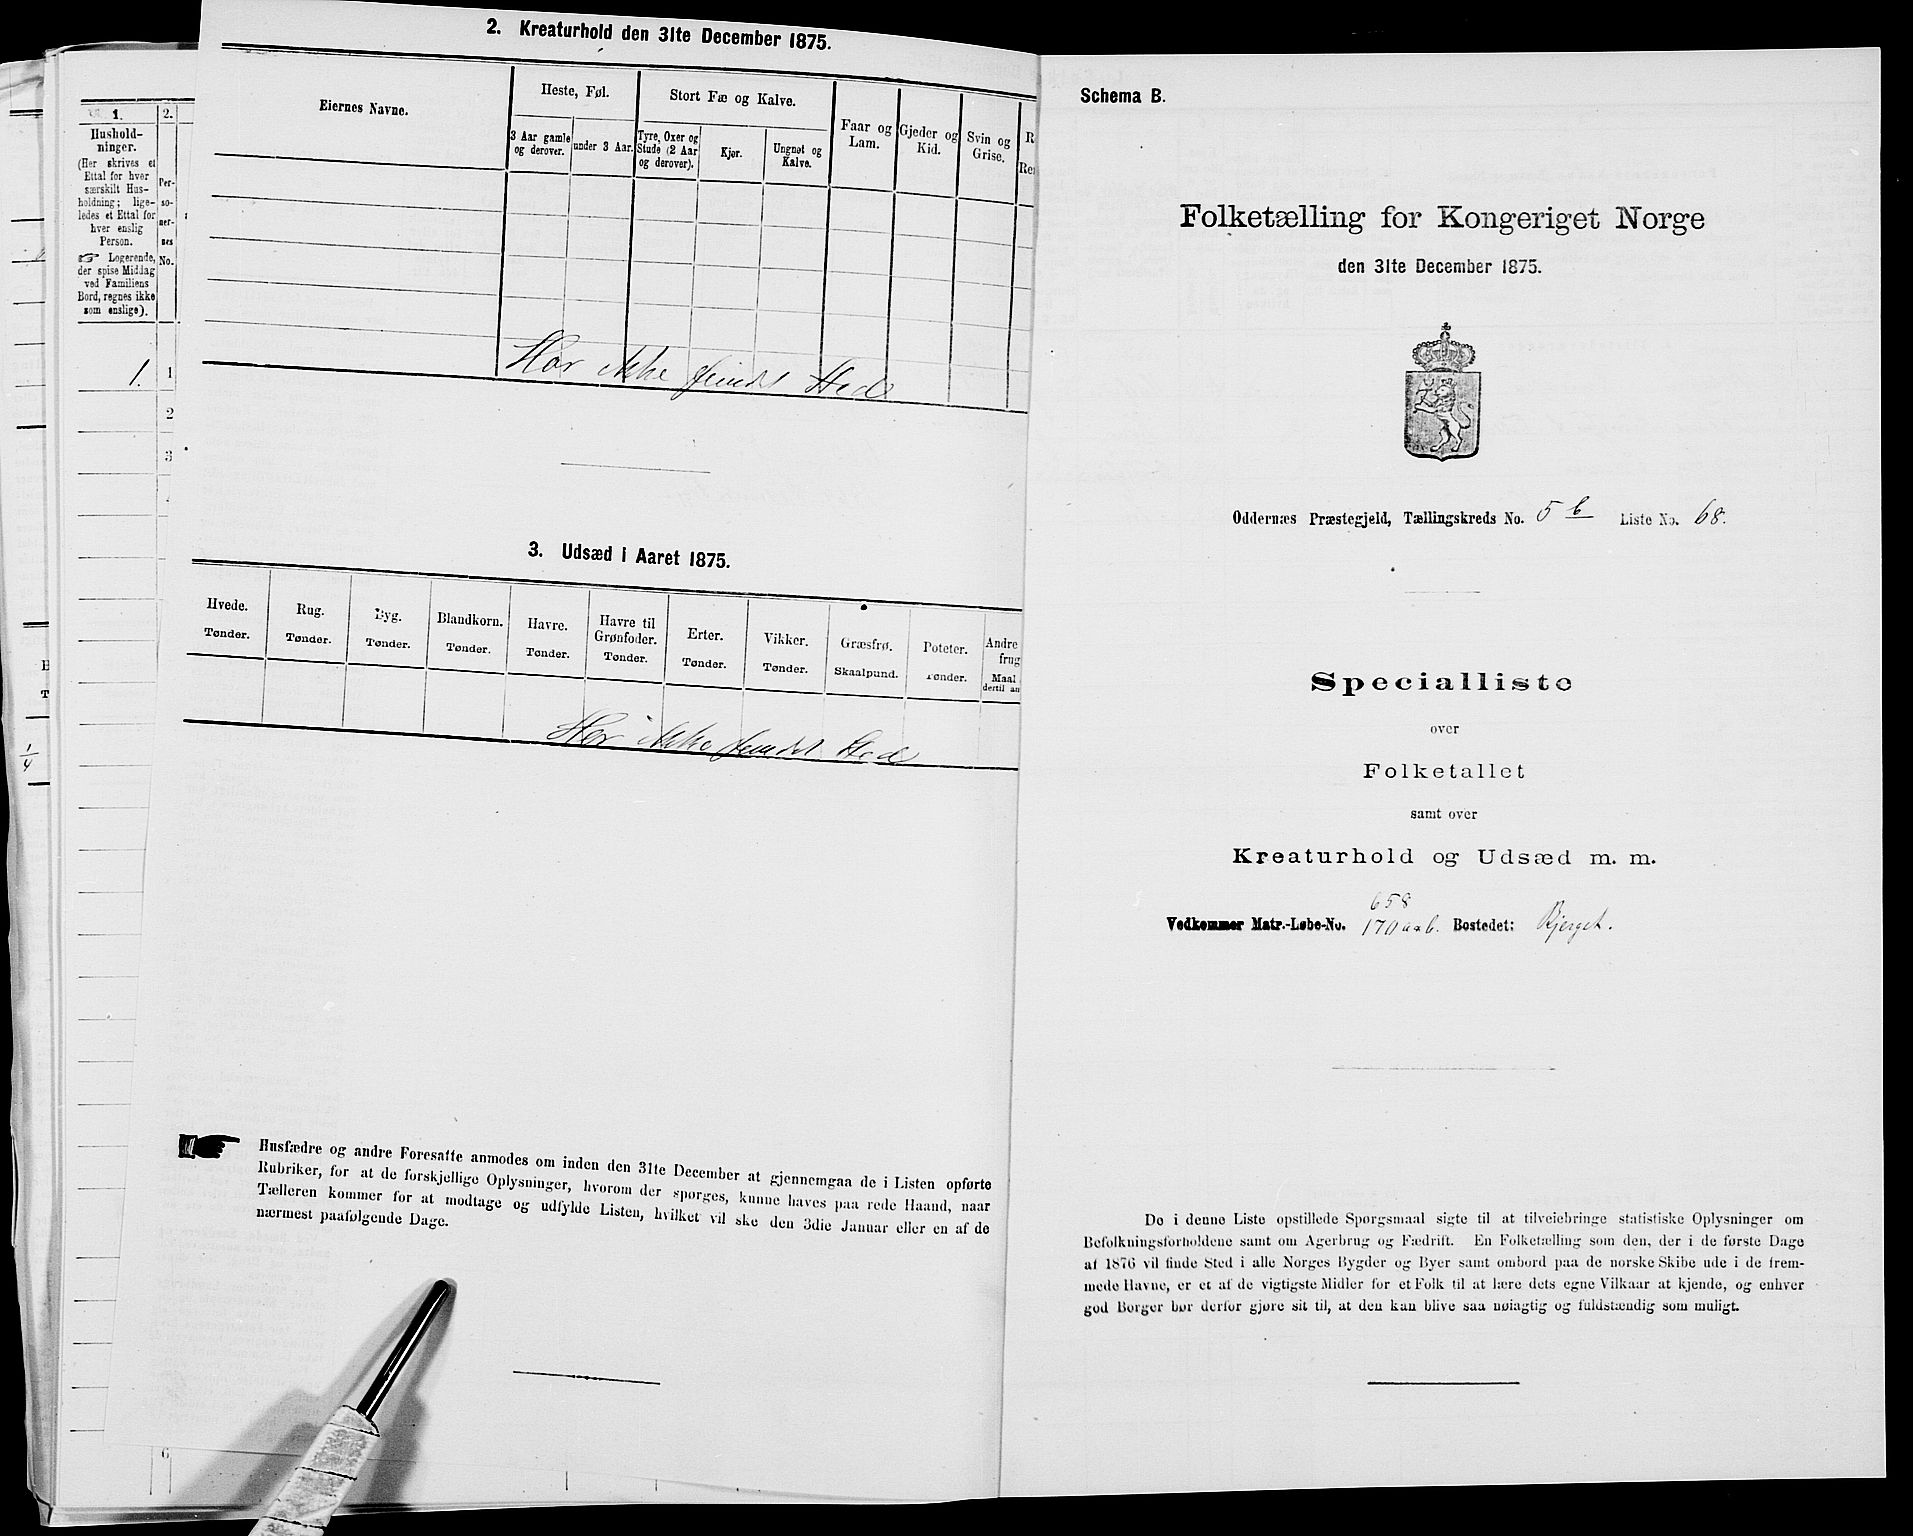 1.
Hushold-
ninger.
(Her skrives et
Ettal for hver
særskilt Hus-
holdning; lige-
ledes et Ettal for
hver enslig
Person.
☞ Logerende,
der spise Middag
ved Familiens
Bord, regnes ikke
som enslige).
2.
Per-
so-
ner-
nes
No.
1.
1
2
3
6
1/4
2. Kreaturhold den 31te December 1875.
Eiernes Navne.
Heste, Føl.
3 Aar gamle
og derover.
under 3 Aar.
Stort Fæ og Kalve.
Tyre, Oxer og
Stude (2 Aar
og derover).
Kjør.
Ungnøt og
Kalve.
Faar og
Lam.
Gjeder og
Kid.
Svin og
Grise.
R
Ren
Har ikke fundet Sted
3. Udsæd i Aaret 1875.
Hvede.
Tønder.
Rug.
Tønder.
Byg.
Tønder.
Blandkorn.
Tønder.
Havre.
Tønder.
Havre til
Grønfoder.
Tønder.
Erter.
Tønder.
Vikker.
Tønder.
Græsfrø.
Skaalpund.
Poteter.
Tønder.
Andre
frug
Maal
dertil an
Har ikke fundet Sted
☞ Husfædre og andre Foresatte anmodes om inden den 31te December at gjennemgaa de i Listen opførte
Rubriker, for at de forskjellige Oplysninger, hvorom der spørges, kunne haves paa rede Haand, naar
Tælleren kommer for at modtage og udfylde Listen, hvilket vil ske den 3die Januar eller en af de
nærmest paafølgende Dage.
Schema B.
Folketælling for Kongeriget Norge
den 31te December 1875.
Oddernæs Præstegjeld, Tællingskreds No. 5 b Liste No. 68.
Specialliste
over
Folketallet
samt over
Kreaturhold og Udsæd m. m.
658
Vedkommer Matr.-Løbe-No. 170 aab. Bostedet: Bjerget.
De i denne Liste opstillede Spørgsmaal sigte til at tilveiebringe statistiske Oplysninger om
Befolkningsforholdene samt om Agerbrug og Fædrift. En Folketælling som den, der i de første Dage
af 1876 vil finde Sted i alle Norges Bygder og Byer samt ombord paa de norske Skibe ude i de frem-
mede Havne, er et af de vigtigste Midler for et Folk til at lære dets egne Vilkaar at kjende, og enhver
god Borger bør derfor gjøre sit til, at den kan blive saa nøiagtig og fuldstændig som muligt.